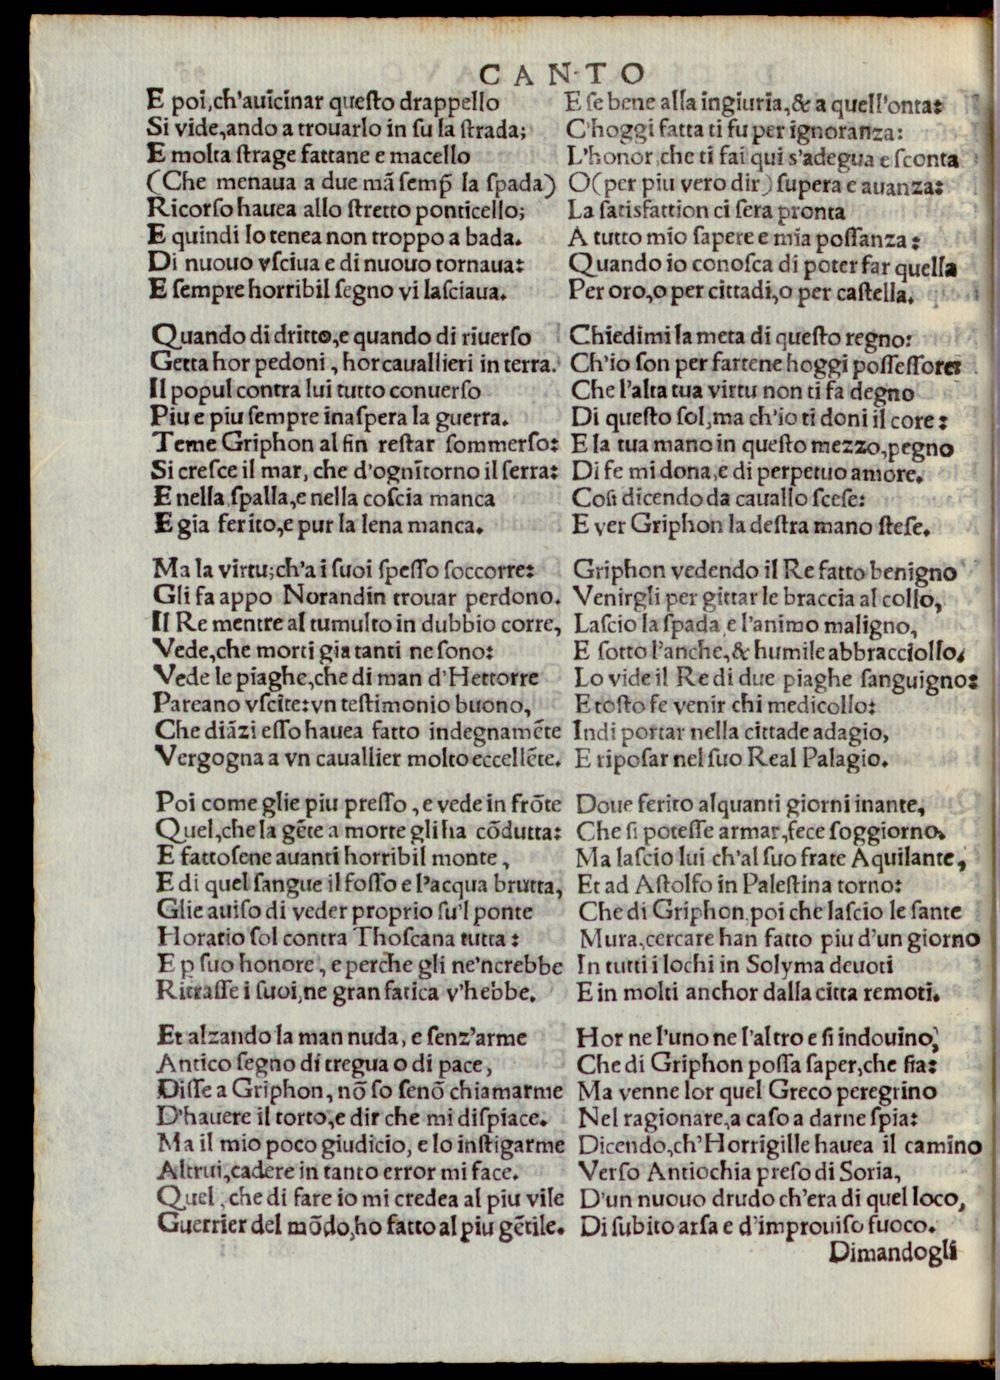 CANTO
E poi, ch'auicinar queſto drappello
Si vide, ando a trouarlo in ſu la ſtrada;
E molta ſtrage fattane e macello
(Che menaua a due mã ſemp̃ la ſpada)
Ricorſo hauea allo ſtretto ponticello;
E quindi lo tenea non troppo a bada.
Di nuouo vſciua e di nuouo tornaua:
E ſempre horribil ſegno vi laſciaua.
Quando di dritto, e quando di riuerſo
Getta hor pedoni, hor cauallieri in terra.
Il popul contra lui tutto conuerſo
Piu e piu ſempre inaſpera la guerra.
Teme Griphon al fin reſtar ſommerſo:
Si creſce il mar, che d'ognītorno il ſerra:
E nella ſpalla, e nella coſcia manca
E gia ferito, e pur la lena manca.
Ma la virtu; ch'a i ſuoi ſpeſſo ſoccorre:
Gli fa appo Norandin trouar perdono.
Il Re mentre al tumulto in dubbio corre,
Vede, che morti gia tanti ne ſono:
Vede le piaghe, che di man d'Hettorre
Pareano vſcite: vn teſtimonio buono,
Che diãzi eſſo hauea fatto indegnamẽte
Vergogna a vn cauallier molto eccellẽte.
Poi come glie piu preſſo, e vede in frõte
Quel, che la gẽte a morte gli ha cõdutta:
E fattoſene auanti horribil monte,
E di quel ſangue il foſſo e l'acqua brutta,
Glie auiſo di veder proprio ſu'l ponte
Horatio ſol contra Thoſcana tutta:
E ꝑ ſuo honore, e perche gli ne'ncrebbe
Ritraſſe i ſuoi, ne gran fatica v'hebbe.
Et alzando la man nuda, e ſenz'arme
Antico ſegno di tregua o di pace,
Diſſe a Griphon, nõ ſo ſenõ chiamarme
D'hauere il torto, e dir che mi diſpiace.
Ma il mio poco giudicio, e lo inſtigarme
Altrui, cadere in tanto error mi face.
Quel, che di fare io mi credea al piu vile
Guerrier del mõdo, ho fatto al piu gẽtile.
E ſe bene alla ingiuria, & a quell'onta:
C'hoggi fatta ti fu per ignoranza:
L'honor, che ti fai qui s'adegua e ſconta
O (per piu vero dir) ſupera e auanza:
La ſatisfattion ci ſera pronta
A tutto mio ſapere e mia poſſanza:
Quando io conoſca di poter far quella
Per oro, o per cittadi, o per caſtella.
Chiedimi la meta di queſto regno:
Ch'io ſon per fartene hoggi poſſeſſore:
Che l'alta tua virtu non ti fa degno
Di queſto ſol, ma ch'io ti doni il core:
E la tua mano in queſto mezzo, pegno
Di fe mi dona, e di perpetuo amore.
Coſi dicendo da cauallo ſceſe:
E ver Griphon la deſtra mano ſteſe.
Griphon vedendo il Re fatto benigno
Venirgli per gittar le braccia al collo,
Laſcio la ſpada, e l'animo maligno,
E ſotto l'anche, & humile abbracciollo.
Lo vide il Re di due piaghe ſanguigno:
E toſto fe venir chi medicollo:
Indi portar nella cittade adagio,
E ripoſar nel ſuo Real Palagio.
Doue ferito alquanti giorni inante,
Che ſi poteſſe armar, fece ſoggiorno.
Ma laſcio lui ch'al ſuo frate Aquilante,
Et ad Aſtolfo in Paleſtina torno:
Che di Griphon, poi che laſcio le ſante
Mura, cercare han fatto piu d'un giorno
In tutti i lochi in Solyma deuoti
E in molti anchor dalla citta remoti.
Hor ne l'uno ne l'altro e ſi indouino,
Che di Griphon poſſa ſaper, che ſia:
Ma venne lor quel Greco peregrino
Nel ragionare, a caſo a darne ſpia:
Dicendo, ch'Horrigille hauea il camino
Verſo Antiochia preſo di Soria,
D'un nuouo drudo ch'era di quel loco,
Di ſubito arſa e d'improuiſo fuoco.
Dimandogli